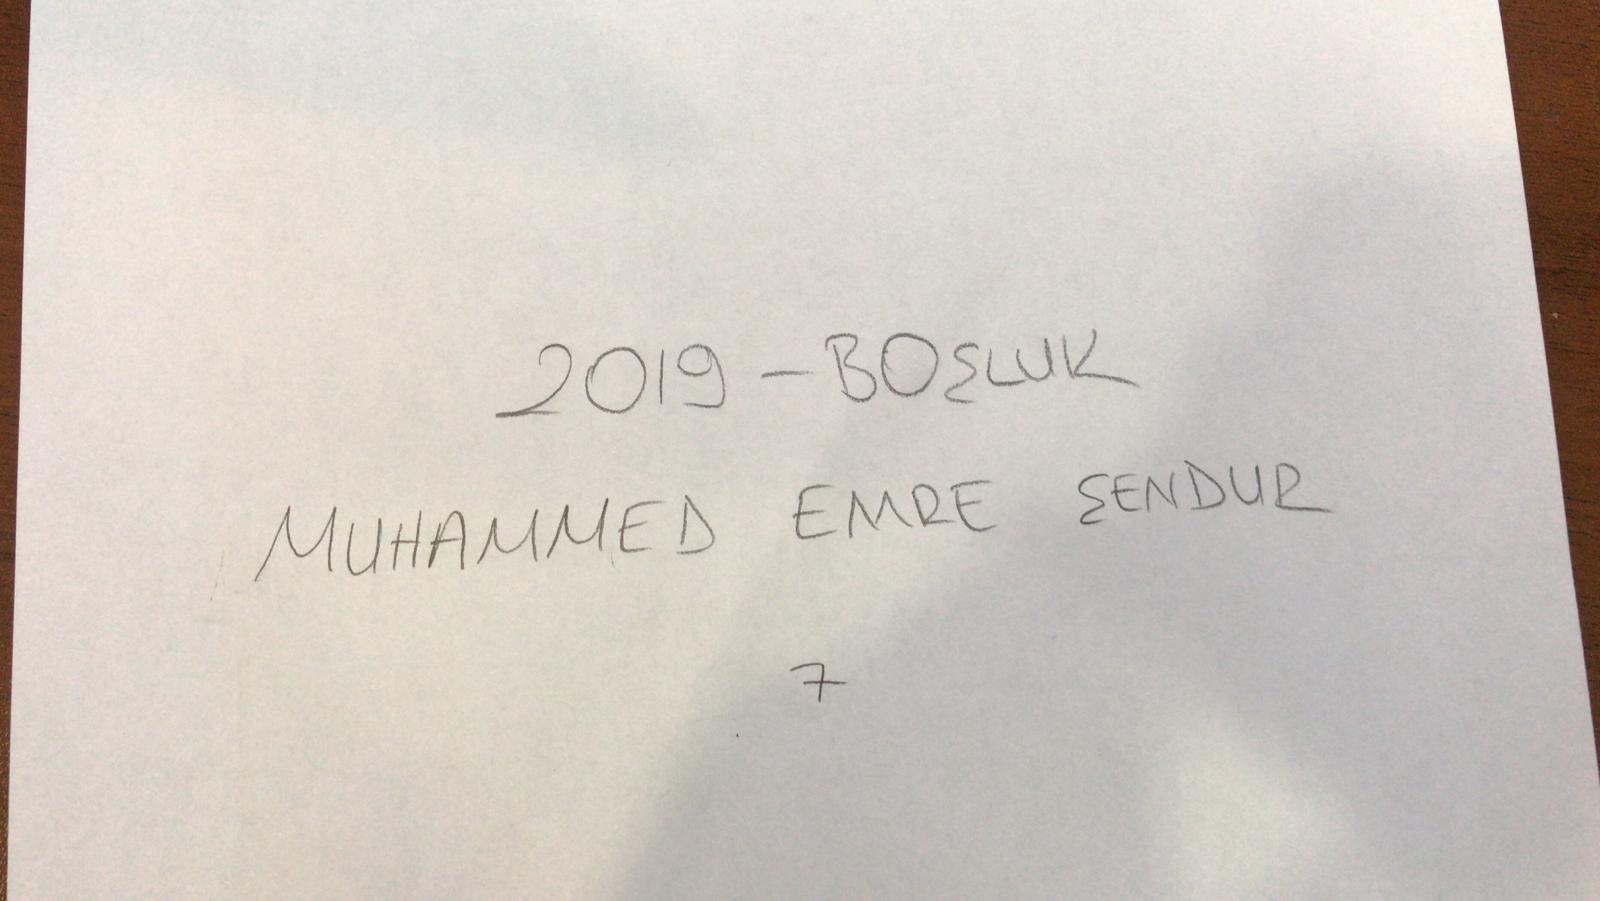 2019 - BOŞLUK
MUHAMMED EMRE ŞENDUR
7